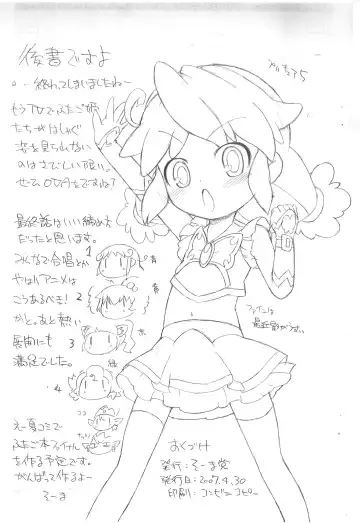 後書ですよ
プリキュア5
・・終わってしまいましたねー
もうTVでふたご姫
たちがはしゃぐ
姿を見られない
のはさびしい限り。
せめてOVAをですね?
最終話はいい締め方
だったと思います。
みんなで合唱とか
やはりアニメは
こうあるべき!
かと。あと熱い
展開にも
満足でした。
1
青
2
青
3
茶
4
緑
ファインは
最近影がうすい
えー夏コミで
ふたご本ファイナル
を作る予定です。
がんばって作るよー
そーま
おくづけ
発行:そーま党
発行日:2007.4.30
印刷:コンビニコピー